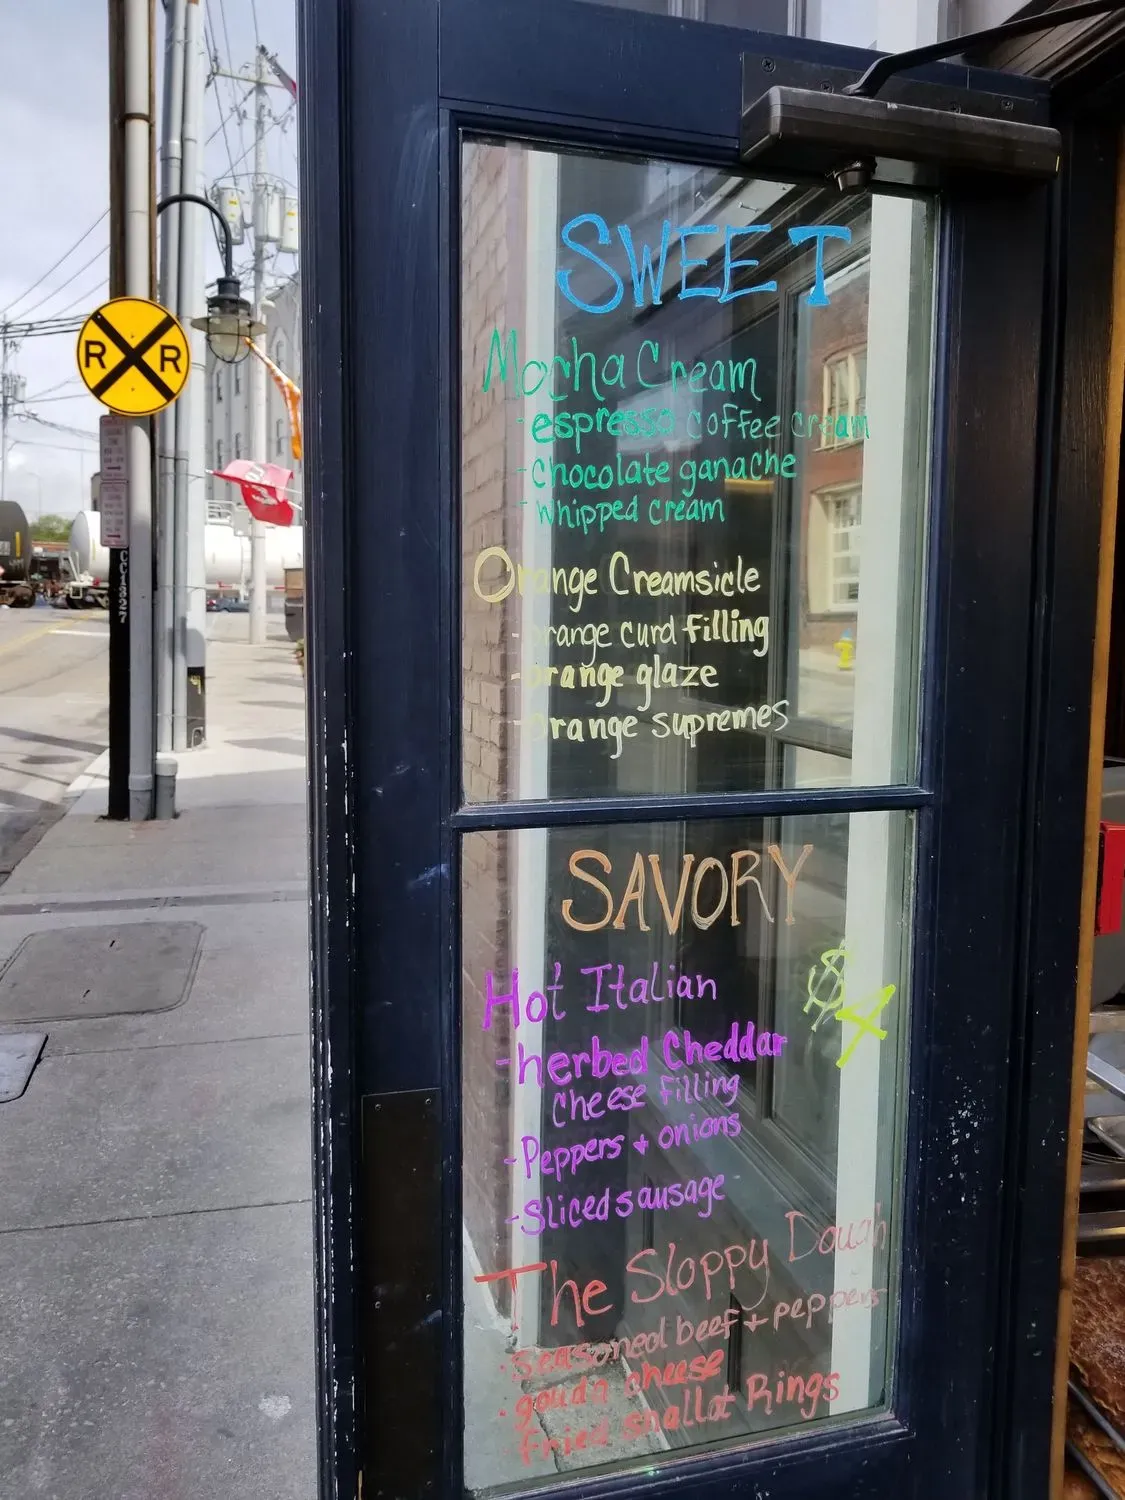 SWEET
Mocha Cream
- espresso coffee cream
- Chocolate ganache
- Whipped cream
Orange Creamsicle
- orange curd filling
- orange glaze
- orange supremes
SAVORY
Hot Italian
$4
- herbed Cheddar
Cheese filling
- Peppers + onions
- Sliced sausage
The Sloppy Dough
· Seasoned beef + peppers
· gouda cheese
fried shallot Rings
R R
CC1327